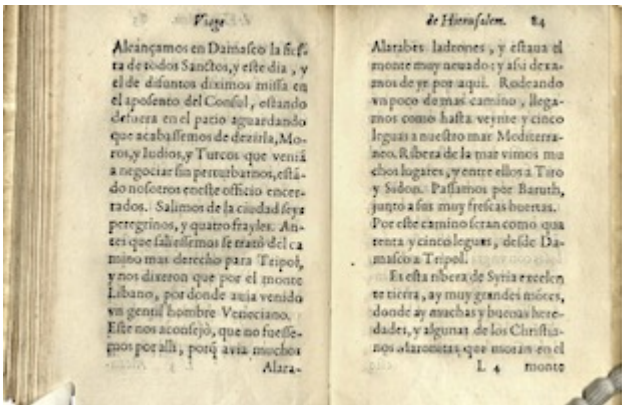 Viage
Alcançamos en Damasco la fies-
ta de todos Sanctos, y este dia, y
el de difuntos diximos missa en
el aposento del Consul, estando
defuera en el patio aguardando
que acabassemos de dezirla, Mo-
ros, y Iudios, y Turcos que veniã
a negociar sin perturbarnos, está-
do nosotros eneste officio encer-
rados. Salimos de la ciudad seys
peregrinos, y quatro frayles. An-
tes que saliessemos se trató del ca
mino mas derecho para Tripol,
y nos dixeron que por el monte
Libano, por donde auia venido
vn gentil hombre Veneciano.
Este nos aconsejò, que no fuesse-
mos por alli, porq̃ avia muchos
Alara-
de Hierusalem. 84
Alarabes ladrones, y estaua el
monte muy neuado: y assi dexa-
mos de yr por aqui. Rodeando
vn poco de mas camino, llega-
mos como hasta veynte y cinco
leguas a nuestro mar Mediterra-
neo. Ribera de la mar vimos mu
chos lugares, y entre ellos a Tiro
y Sidon. Passamos por Baruth,
junto a sus muy frescas huertas.
Por este camino seran como qua
renta y cinco leguas, desde Da-
masco a Tripol.
Es esta ribera de Syria excelen
te tierra, ay muy grandes mõtes,
donde ay muchas y buenas here-
dades, y algunas de los Christia-
nos Maronitas que moran en el
L 4 monte